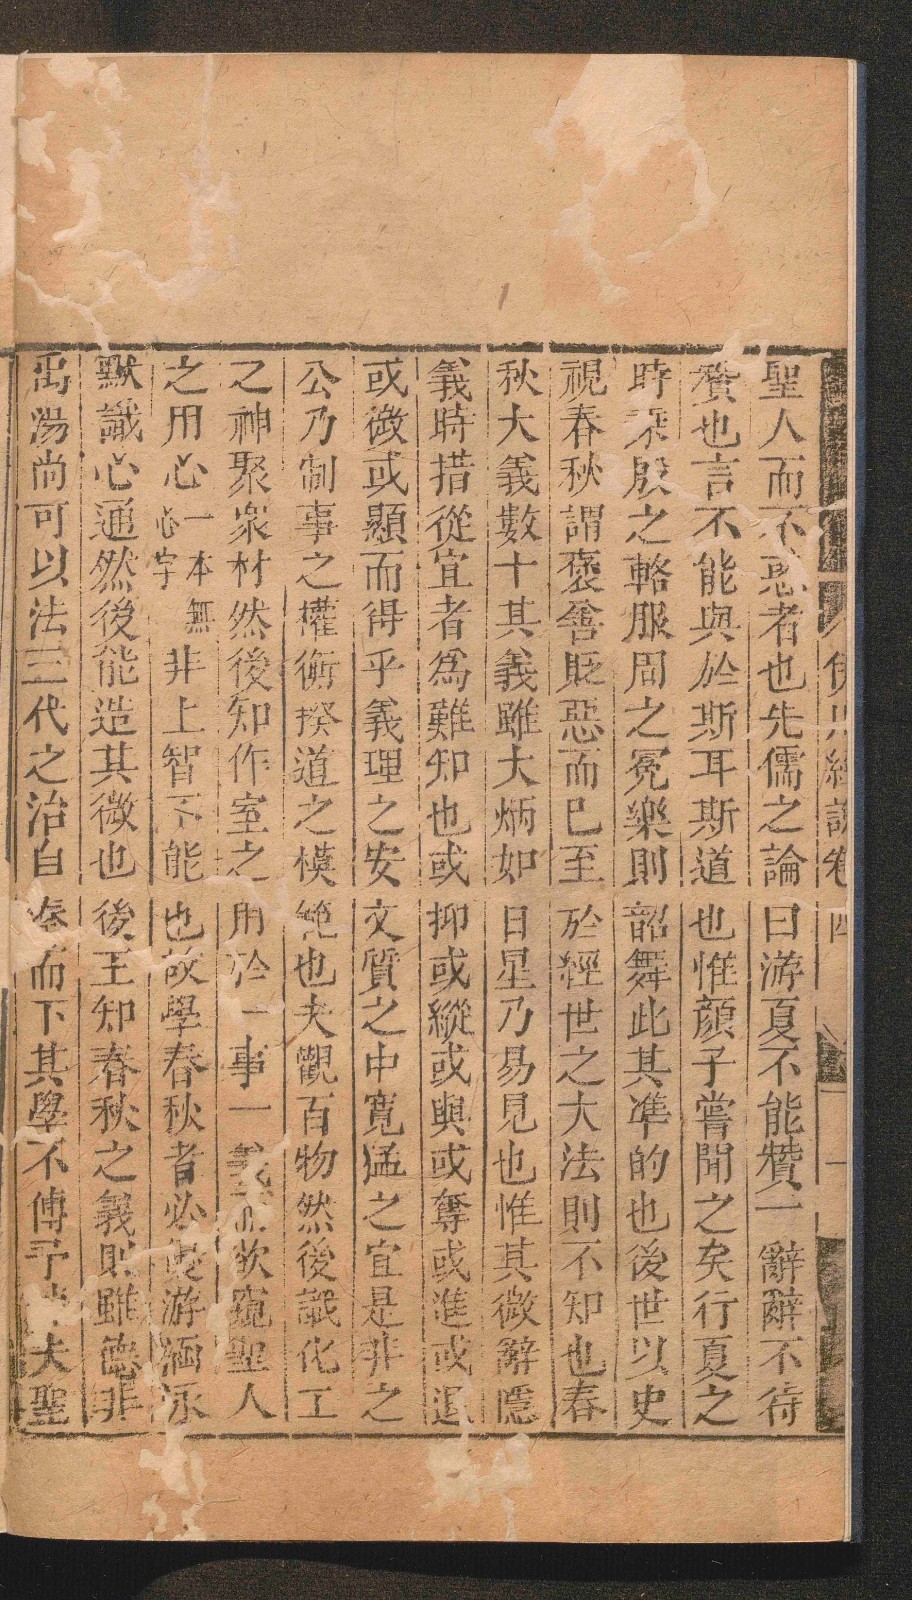 伊川經說卷四 一
聖人而不惑者也先儒之論曰游夏不能贊一辭辭不待
贊也言不能與於斯耳斯道也惟顏子嘗聞之矣行夏之
時乘殷之輅服周之冕樂則韶舞此其準的也後世以史
視春秋謂褒善貶惡而已至於經世之大法則不知也春
秋大義數十其義雖大炳如日星乃易見也惟其微辭隱
義時措從宜者為難知也或抑或縱或與或奪或進或退
或微或顯而得乎義理之安文質之中寬猛之宜是非之
公乃制事之權衡揆道之模範也夫觀百物然後識化工
之神聚衆材然後知作室之用於一事一義而欲窺聖人
之用心一本無心字非上智不能也故學春秋者必優游涵泳
默識心通然後能造其微也後王知春秋之義則雖德非
禹湯尚可以法三代之治自秦而下其學不傳予悼夫聖